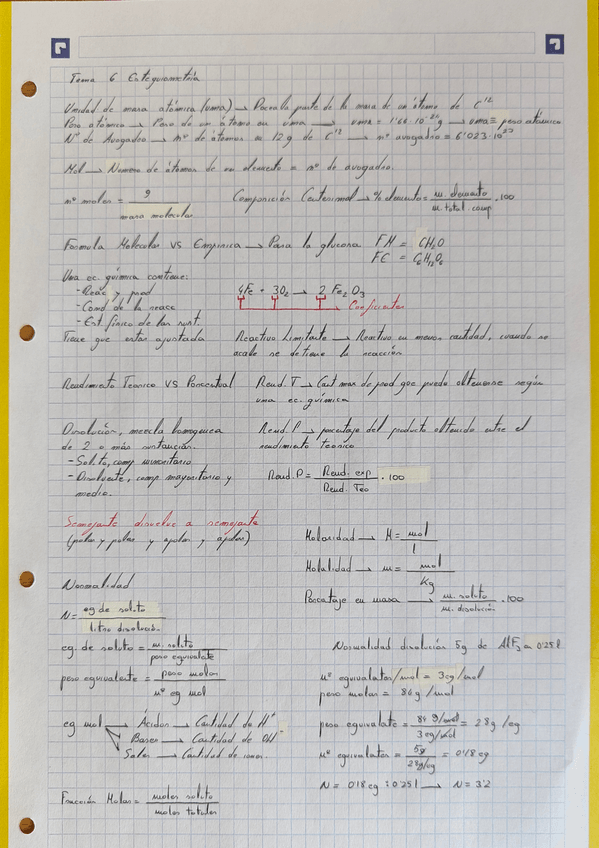 Tema 6 Estequiometría
Unidad de masa atómica (uma) → Doceaba parte de la masa de un átomo de C¹²
Peso atómico → Peso de un átomo en uma → uma = 1'66·10⁻²⁴ g → uma ≡ peso atómico
Nº de Avogadro → nº de átomos en 12 g de C¹² → nº avogadro = 6'023·10²³
Mol → Número de átomos de un elemento = nº de avogadro.
nº moles = g / masa molecular
Composición Centesimal → % elemento = m. elemento / m. total comp · 100
Formula Molecular VS Empírica → Para la glucosa FM = CH₂O
FE = C₆H₁₂O₆
Una ec. química contiene:
- Reac y prod
- Cond de la reacc
- Est. físico de las sust.
4Fe + 3O₂ → 2 Fe₂O₃
Coeficientes
Tiene que estar ajustada
Reactivo Limitante → Reactivo en menos cantidad, cuando se
acabe se detiene la reacción
Rendimiento Teorico VS Porcentual
Rend. T → Cant max de prod que puede obtenerse según
una ec. química
Disolución, mezcla homogenea
de 2 o más sustancias.
- Soluto, comp minoritario
- Disolvente, comp mayoritario y
medio.
Rend. P → porcentaje del producto obtenido entre el
rendimiento teorico
Rend. P = Rend. exp / Rend. Teo · 100
Semejante disuelve a semejante
(polar y polar y apolar y apolar)
Molaridad → M = mol / l
Molalidad → m = mol / Kg
Porcentaje en masa → m. soluto / m. disolución · 100
Normalidad
N = eg de soluto / litro disolución
eg. de soluto = m. soluto / peso equivalente
peso equivalente = peso molar / nº eg mol
eg mol → Ácidos → Cantidad de H⁺
Bases → Cantidad de OH⁻
Sales → Cantidad de iones.
Fracción Molar = moles soluto / moles totales
Normalidad disolución 5g de AlF₃ en 0'25 l
nº equivalentes/mol = 3 eg/mol
peso molar = 84 g/mol
peso equivalente = 84 g/mol / 3 eg/mol = 28 g/eg
nº equivalentes = 5g / 28 g/eg = 0'18 eg
N = 0'18 eg : 0'25 l → N = 3'2